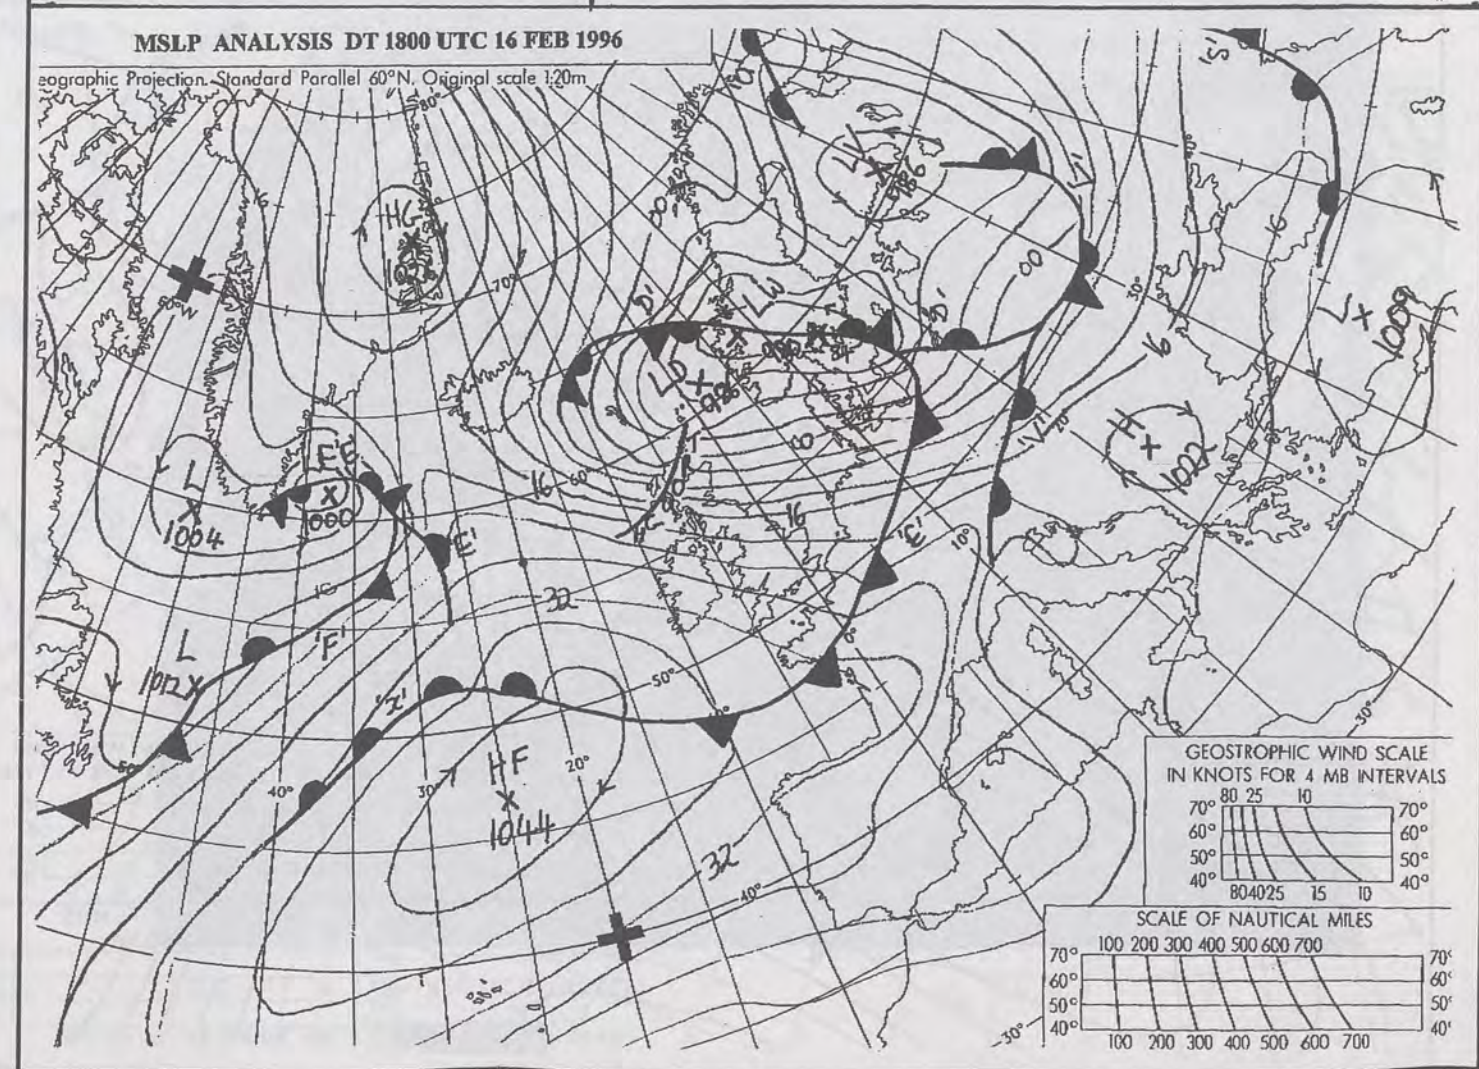 MSLP ANALYSIS DT 1800 UTC 16 FEB 1996
eographic Projection. Standard Parallel 60°N. Original scale 1:20m
80°
'S'
16
LV
986
'V'
HG
00
70°
30°
'D'
LW
00
'B'
L
1009
60°W
LD
986
16
'V'
20°
H
1022
L
1004
LE
'E'
1000
16
60°
00
16
'E'
'E'
10°
16
32
0°
'F'
L
1012
'X'
50°
50°
HF
1044
40°
30°
20°
30°
32
40°
30°
GEOSTROPHIC WIND SCALE
IN KNOTS FOR 4 MB INTERVALS
80 25 10
70° 70°
60° 60°
50° 50°
40° 40°
80 40 25 15 10
SCALE OF NAUTICAL MILES
100 200 300 400 500 600 700
70° 70°
60° 60°
50° 50°
40° 40°
100 200 300 400 500 600 700